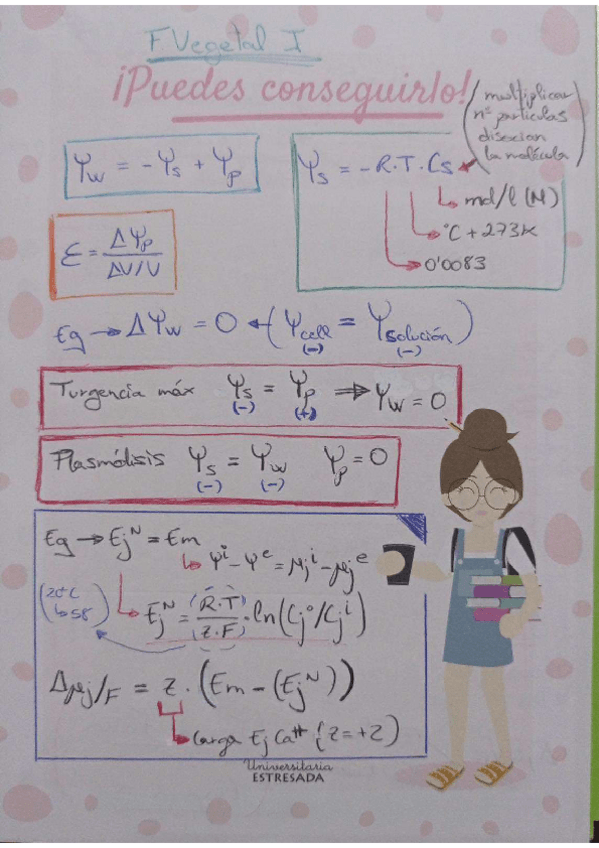 F. Vegetal I
¡Puedes conseguirlo!
(multiplicar
nº partículas
disocian
la molécula)
Ψw = -Ψs + Ψp
Ψs = -R.T.Cs
mol/l (M)
°C + 273K
0'0083
ε = ΔΨp / ΔV/V
Eg → ΔΨw = 0 ← (Ψcell (-) = Ψsolución (-))
Turgencia máx Ψs (-) = Ψp (+) ⇒ Ψw = 0
Plasmólisis Ψs (-) = Ψw (-) Ψp = 0
Eg → Ej^N = Em
Ψ^i - Ψ^e = μj^i - μj^e
Ej^N = (R.T / Z.F) · ln(Cj^o/Cj^i)
58
Δμj/F = Z · (Em - (Ej^N))
Carga Ej Ca⁺⁺ (Z = +2)
Universitaria
ESTRESADA